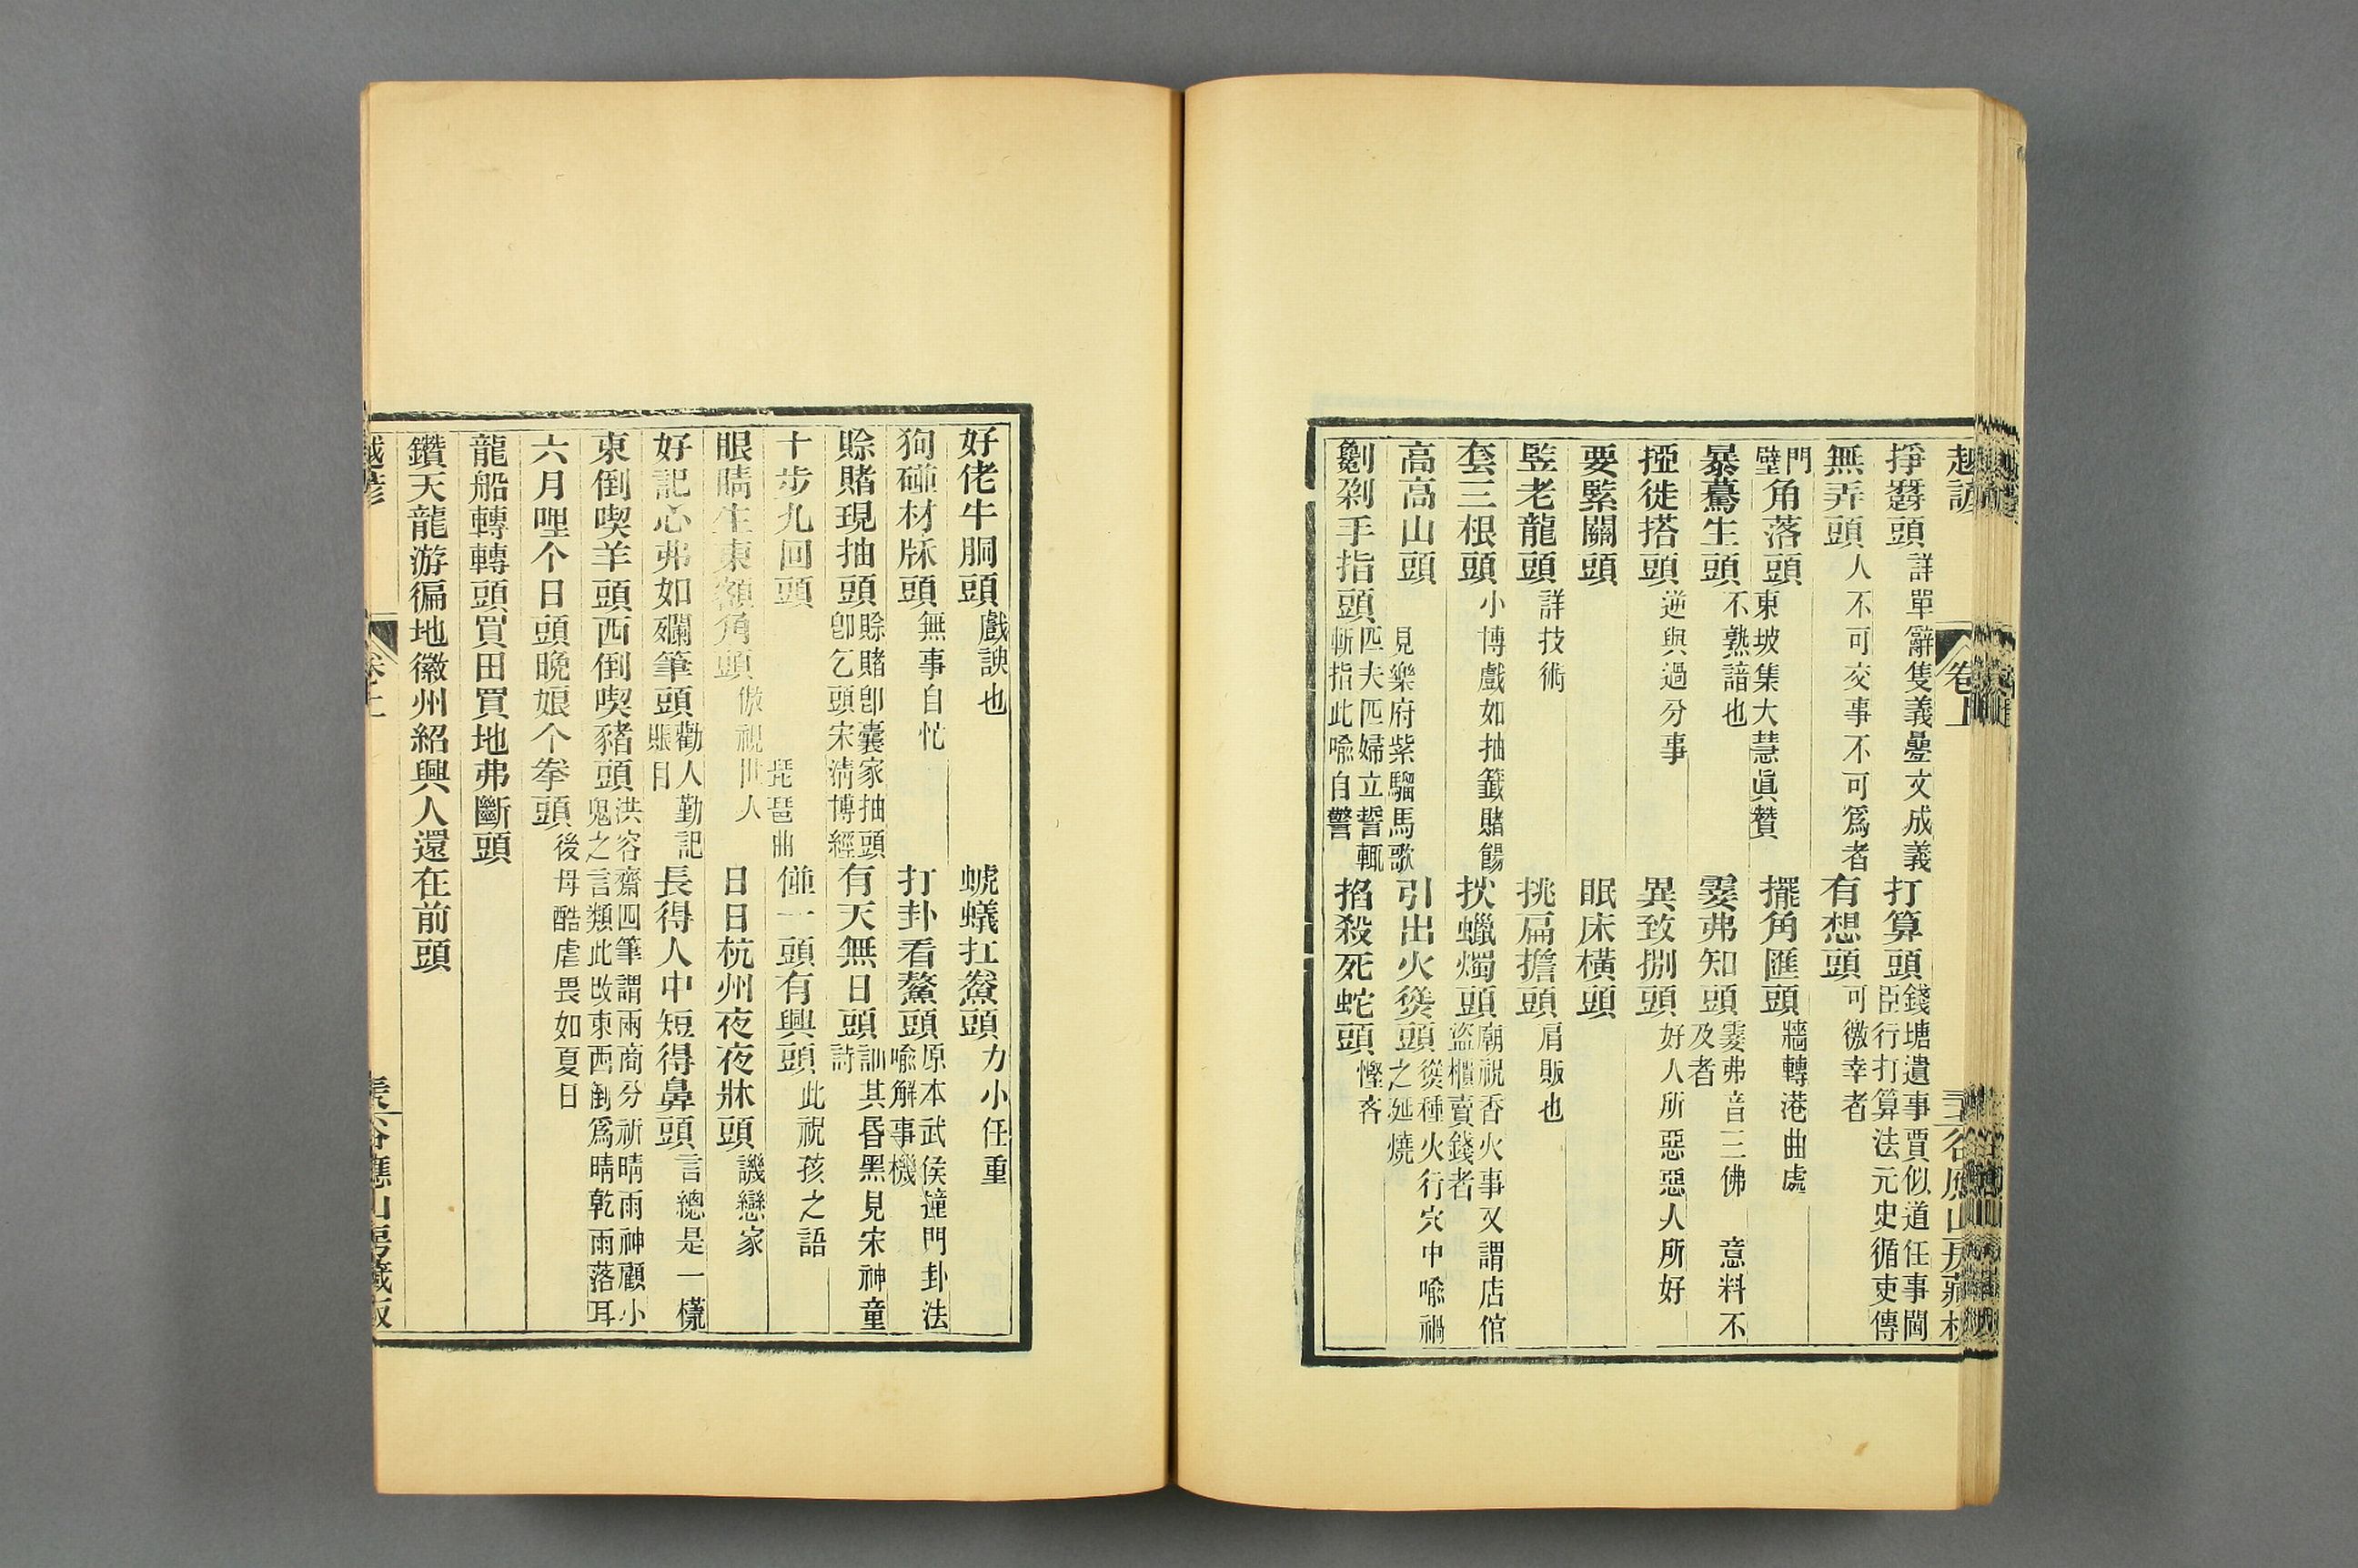 越諺 卷上 谷應山房藏板
掙頭 詳單辭隻義疊文成義 打算頭 錢塘遺事賈似道任事閫臣行打算法元史循吏傳
無弄頭 人不可交事不可爲者 有想頭 可徼幸者
門壁角落頭 東坡集大慧眞贊 擺角匯頭 牆轉港曲處
暴驀生頭 不熟諳也 霎弗知頭 霎弗音三佛 意料不及者
挜徙搭頭 逆與過分事 異致捌頭 好人所惡惡人所好
要緊關頭 眠床橫頭
竪老龍頭 詳技術 挑扁擔頭 肩販也
套三根頭 小博戲如抽籤賭餳 扻蠟燭頭 廟祝香火事又謂店倌盜櫃賣錢者
高高山頭 見樂府紫騮馬歌 引出火頭 種火行穴中喩禍之延燒
剁手指頭 匹夫匹婦立誓輒斬指此喩自警 掐殺死蛇頭 慳吝
好佬牛胴頭 戲諛也 蚁扛鯗頭 力小任重
狗碰材牀頭 無事自忙 打卦看鰲頭 原本武侯撞門卦法喩解事機
賒賭現抽頭 賒賭卽囊家抽頭卽乞頭宋淸博經 有天無日頭 訓其昏黑見宋神童詩
十步九回頭 琵琶曲 碰一頭有興頭 此祝孩之語
眼睛生東額角頭 傲視世人 日日杭州夜夜牀頭 譏戀家
好記心弗如爛筆頭 勸人勤記賬目 長得人中短得鼻頭 言總是一樣
東倒喫羊頭西倒喫豬頭 洪容齋四筆謂兩商分祈晴雨神顧小鬼之言類此改東西倒爲晴乾雨落耳
六月哩个日頭晩娘个拳頭 後母酷虐畏如夏日
龍船轉轉頭買田買地弗斷頭
鑽天龍游徧地徽州紹興人還在前頭
越諺 卷上 谷應山房藏板